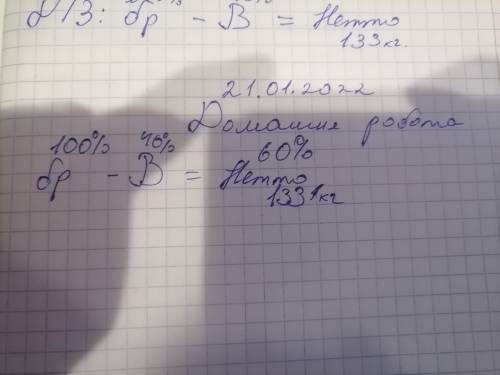 Д/З: бр - В = Нетто
133кг.
21.01.2022
Домашня робота
100% 40% 60%
бр - В = Нетто
133кг